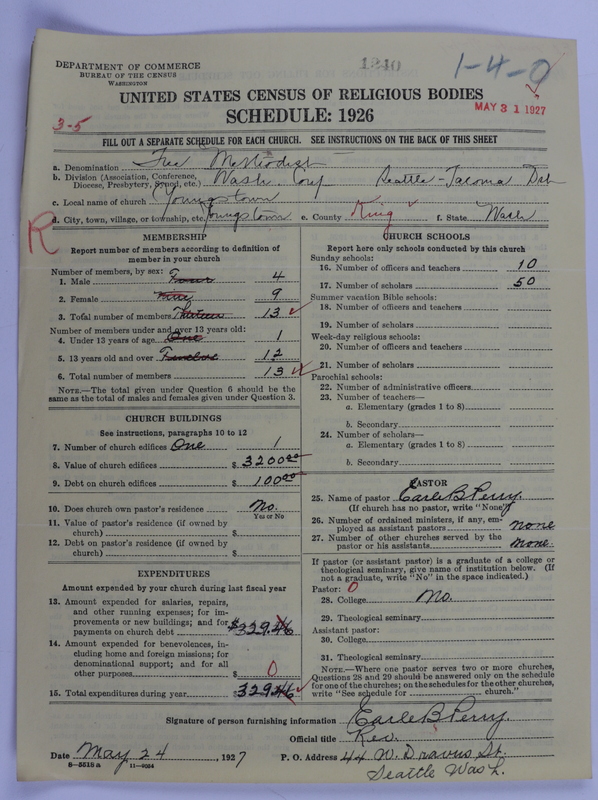 DEPARTMENT OF COMMERCE
BUREAU OF THE CENSUS
WASHINGTON
1240
1-4-0
UNITED STATES CENSUS OF RELIGIOUS BODIES
MAY 31 1927
SCHEDULE: 1926
3-5
FILL OUT A SEPARATE SCHEDULE FOR EACH CHURCH. SEE INSTRUCTIONS ON THE BACK OF THIS SHEET
a. Denomination Free Methodist
b. Division (Association, Conference, Diocese, Presbytery, Synod, etc.) Wash. Conf Seattle-Tacoma Dst
c. Local name of church (Youngstown
d. City, town, village, or township, etc. Youngstown e. County King f. State Wash
R
MEMBERSHIP
Report number of members according to definition of
member in your church
Number of members, by sex:
1. Male Four 4
2. Female Nine 9
3. Total number of members Thirteen 13
Number of members under and over 13 years old:
4. Under 13 years of age One 1
5. 13 years old and over Twelve 12
6. Total number of members 13
NOTE.—The total given under Question 6 should be the
same as the total of males and females given under Question 3.
CHURCH BUILDINGS
See instructions, paragraphs 10 to 12
7. Number of church edifices One 1
8. Value of church edifices $ 3200.00
9. Debt on church edifices $ 100.00
10. Does church own pastor's residence No.
Yes or No
11. Value of pastor's residence (if owned by
church) $
12. Debt on pastor's residence (if owned by
church) $
EXPENDITURES
Amount expended by your church during last fiscal year
13. Amount expended for salaries, repairs,
and other running expenses; for im-
provements or new buildings; and for
payments on church debt $329.46
14. Amount expended for benevolences, in-
cluding home and foreign missions; for
denominational support; and for all
other purposes $ 0
15. Total expenditures during year $329.46
CHURCH SCHOOLS
Report here only schools conducted by this church
Sunday schools:
16. Number of officers and teachers 10
17. Number of scholars 50
Summer vacation Bible schools:
18. Number of officers and teachers
19. Number of scholars
Week-day religious schools:
20. Number of officers and teachers
21. Number of scholars
Parochial schools:
22. Number of administrative officers
23. Number of teachers—
a. Elementary (grades 1 to 8)
b. Secondary
24. Number of scholars—
a. Elementary (grades 1 to 8)
b. Secondary
PASTOR
25. Name of pastor Earle B Perry
(If church has no pastor, write "None")
26. Number of ordained ministers, if any, em-
ployed as assistant pastors none
27. Number of other churches served by the
pastor or his assistants none.
If pastor (or assistant pastor) is a graduate of a college or
theological seminary, give name of institution below. (If
not a graduate, write "No" in the space indicated.)
Pastor: 0
28. College No.
29. Theological seminary
Assistant pastor:
30. College
31. Theological seminary
NOTE.—Where one pastor serves two or more churches,
Questions 28 and 29 should be answered only on the schedule
for one of the churches; on the schedules for the other churches,
write "See schedule for church."
Signature of person furnishing information Earle B Perry.
Official title Rev.
Date May 24 1927 P. O. Address 44 W. Dravus St.
8—5518 a 11—9024 Seattle Wash.